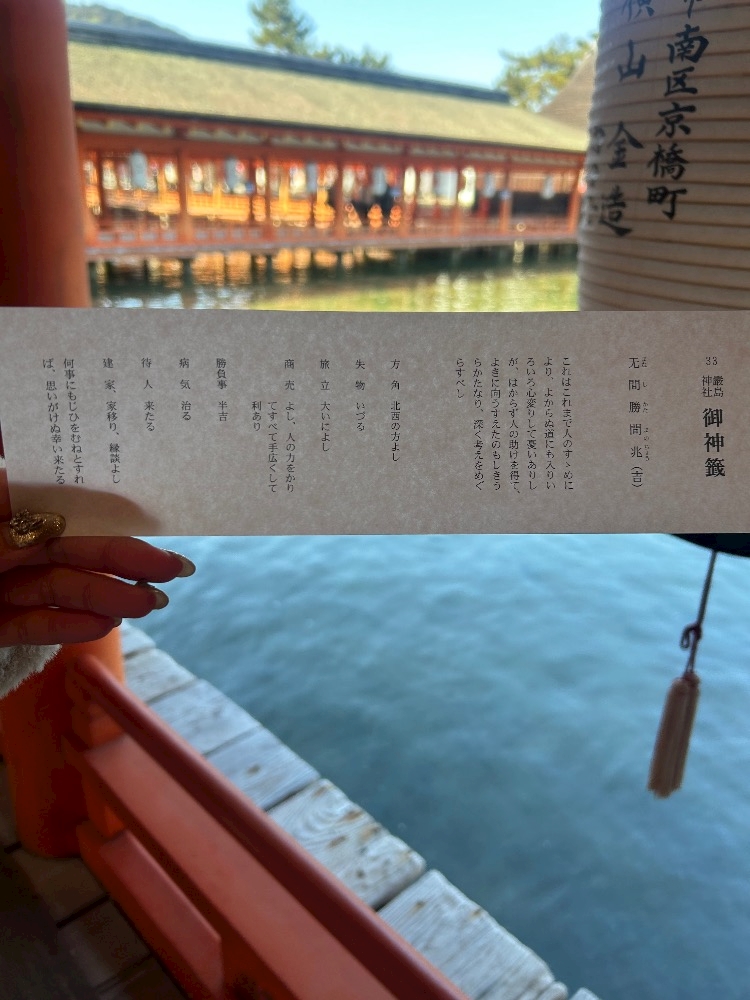 南区京橋町
横山金造
33
嚴島
神社
御神籤
无間勝間兆(吉)
これはこれまで人のすゝめに
より、よからぬ道にも入りい
ろいろ心変りして憂いありし
が、はからず人の助けを得て、
よきに向うすえたのもしきう
らかたなり、深く考えをめぐ
らすべし
方角 北西の方よし
失物 いづる
旅立 大いによし
商売 よし、人の力をかり
てすべて手広くして
利あり
勝負事 半吉
病気 治る
待人 来たる
建家 家移り、縁談よし
何事にもじひをむねとすれ
ば、思いがけぬ幸い来たる